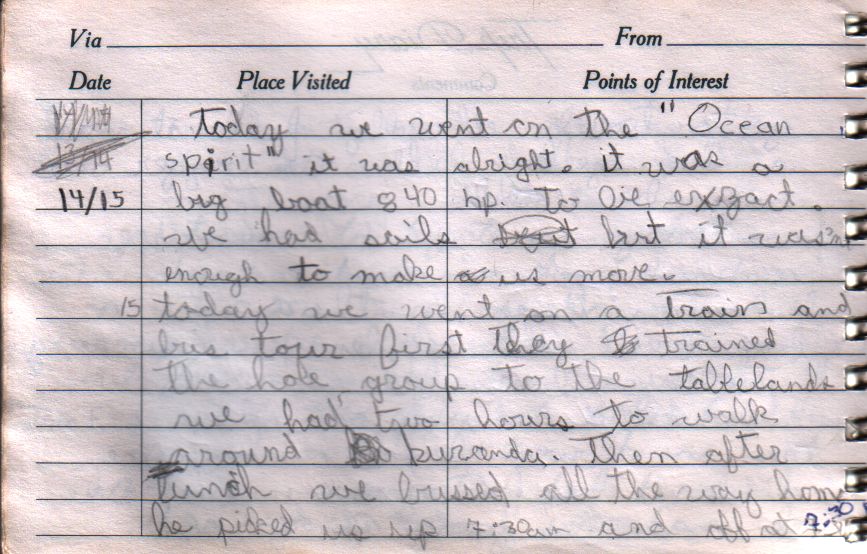 Via From
Date Place Visited Points of Interest
today we went on the "Ocean
spirit" it was alright. it was a
14/15 big boat 840 hp. to be exzact.
we had sails but it wasn't
enough to make us move.
15 today we went on a train and
bus tour first they trained
the hole group to the tablelands
we had two hours to walk
around kuranda. Then after
lunch we bussed all the way home
he picked us up 7:30am and off at 7:30